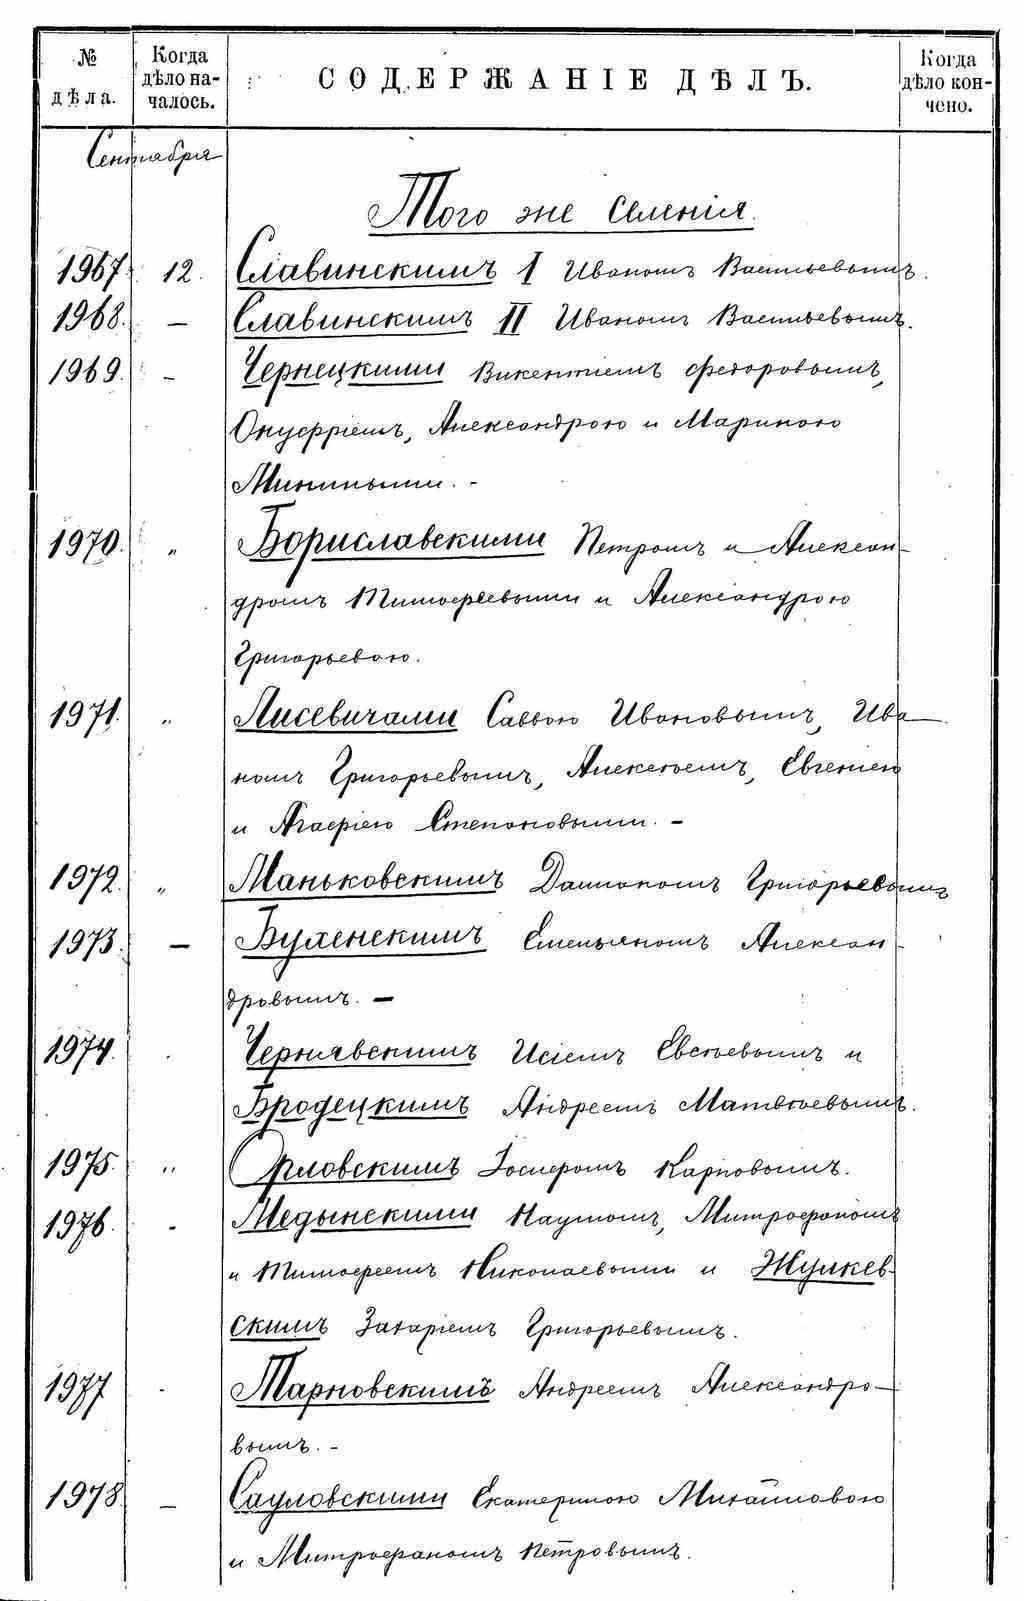 № дѣла.
Когда дѣло на-
чалось.
СОДЕРЖАНІЕ ДѢЛЪ.
Когда дѣло кон-
чено.
Сентября
Того же селенія.
1967. 12. Славинскимъ I Иваномъ Васильевымъ.
1968. — Славинскимъ II Иваномъ Васильевымъ.
1969. — Чернецкими Викентіемъ Федоровымъ,
Онуфріемъ, Александрою и Мариною
Миниными. -
1970. „ Бориславскими Петромъ и Алексан-
дромъ Тимофѣевыми и Александрою
Григорьевою.
1971. „ Лисевичами Саввою Ивановымъ, Ива-
номъ Григорьевымъ, Алексѣемъ, Евгеніею
и Агафіею Степановыми. -
1972. „ Маньковскимъ Даміаномъ Григорьевымъ
1973. — Буженскимъ Емельяномъ Алексан-
дровымъ. —
1974. Чернявскимъ Исіемъ Евсѣевымъ и
Бродецкимъ Андреемъ Матвѣевымъ.
1975. „ Орловскимъ Іосифомъ Карповымъ.
1976. - Медынскими Наумомъ, Митрофаномъ
и Тимофеемъ Николаевыми и Жулкев-
скимъ Захаріемъ Григорьевымъ.
1977 - Тарновскимъ Андреемъ Александро-
вымъ. -
1978 — Сауловскими Екатериною Михайловою
и Митрофаномъ Петровымъ.